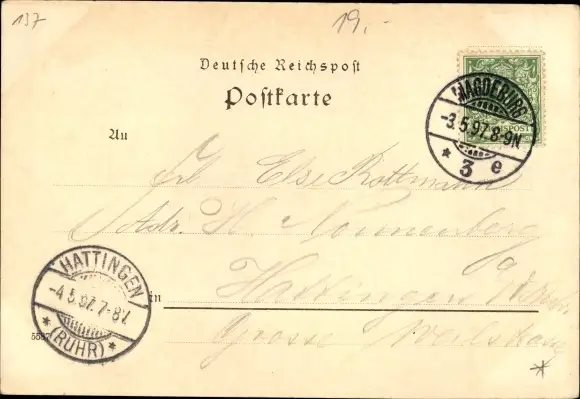 137
19.-
Deutsche Reichspost
Postkarte
MAGDEBURG
-3.5.97.8-9N
* 3 e
REICHSPOST
An
Frl. Else Rottmann
Adr. H. Nonnenberg
HATTINGEN
-4.5.97.7-8V.
* (RUHR) *
in
Hattingen
Grosse